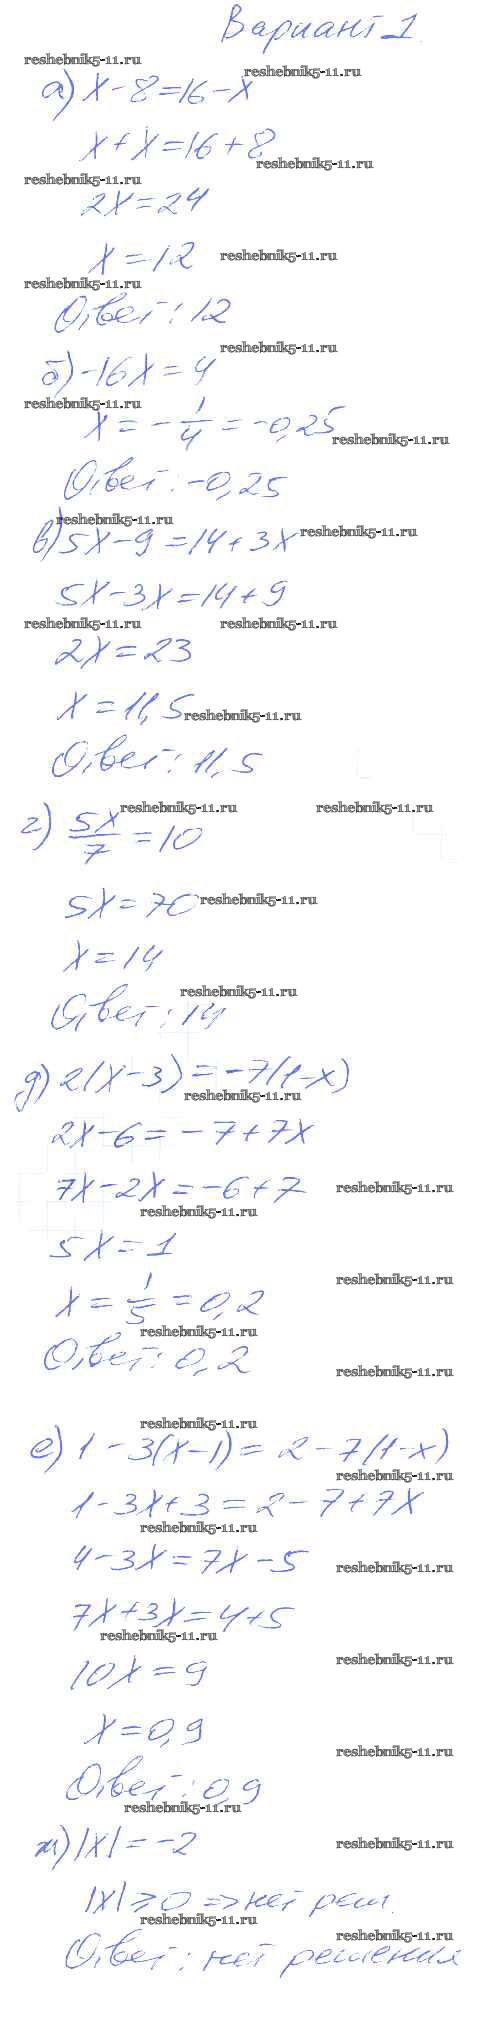 Вариант 1.
reshebnik5-11.ru
reshebnik5-11.ru
а) x - 8 = 16 - x
x + x = 16 + 8
reshebnik5-11.ru
reshebnik5-11.ru
2x = 24
x = 12 reshebnik5-11.ru
reshebnik5-11.ru
Ответ: 12
reshebnik5-11.ru
б) -16x = 4
reshebnik5-11.ru
x = -1/4 = -0,25
reshebnik5-11.ru
Ответ: -0,25
reshebnik5-11.ru
reshebnik5-11.ru
в) 5x - 9 = 14 + 3x
5x - 3x = 14 + 9
reshebnik5-11.ru reshebnik5-11.ru
2x = 23
x = 11,5 reshebnik5-11.ru
Ответ: 11,5
reshebnik5-11.ru reshebnik5-11.ru
г) 5x/7 = 10
5x = 70 reshebnik5-11.ru
x = 14
reshebnik5-11.ru
Ответ: 14
д) 2(x - 3) = -7(1 - x)
reshebnik5-11.ru
2x - 6 = -7 + 7x
7x - 2x = -6 + 7 reshebnik5-11.ru
reshebnik5-11.ru
5x = 1
reshebnik5-11.ru
x = 1/5 = 0,2
reshebnik5-11.ru
Ответ: 0,2
reshebnik5-11.ru
reshebnik5-11.ru
е) 1 - 3(x - 1) = 2 - 7(1 - x)
reshebnik5-11.ru
1 - 3x + 3 = 2 - 7 + 7x
reshebnik5-11.ru
4 - 3x = 7x - 5 reshebnik5-11.ru
7x + 3x = 4 + 5
reshebnik5-11.ru
10x = 9 reshebnik5-11.ru
x = 0,9
reshebnik5-11.ru
Ответ: 0,9
reshebnik5-11.ru
ж) |x| = -2 reshebnik5-11.ru
|x| ⩾ 0 => нет реш.
reshebnik5-11.ru
reshebnik5-11.ru
Ответ: нет решения